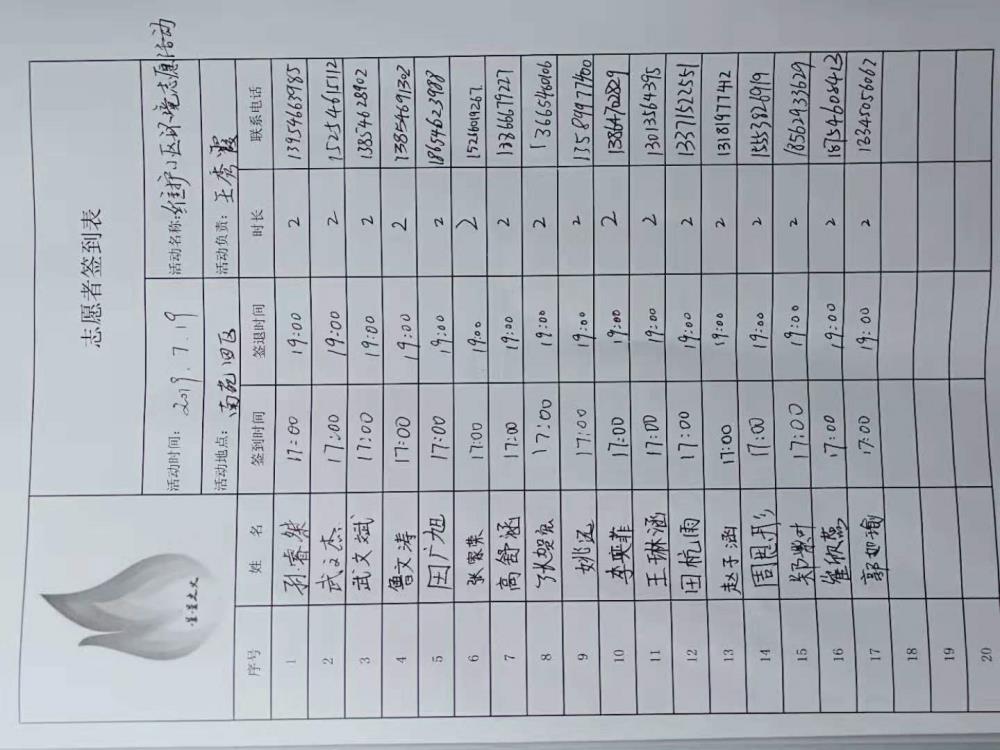 志愿者签到表
星星之火
活动时间: 2019.7.19 活动名称:维护小区环境志愿活动
活动地点: 南苑四区 活动负责: 王秀霞
序号 姓 名 签到时间 签退时间 时长 联系电话
1 孙睿 17:00 19:00 2 13954663985
2 武文杰 17:00 19:00 2 15254615112
3 武文斌 17:00 19:00 2 13854628902
4 鲁文涛 17:00 19:00 2 13854691302
5 田广旭 17:00 19:00 2 18654623988
6 张家荣 17:00 19:00 2 15216019267
7 高舒涵 17:00 19:00 2 13866679227
8 张贺 17:00 19:00 2 13665460106
9 姚远 17:00 19:00 2 15589977400
10 李奥菲 17:00 19:00 2 13864762829
11 王琳涵 17:00 19:00 2 13013564395
12 田杭雨 17:00 19:00 2 13371522551
13 赵子涵 17:00 19:00 2 13181977412
14 周思彤 17:00 19:00 2 15553826919
15 郑 17:00 19:00 2 18562933629
16 崔欣燕 17:00 19:00 2 18754608423
17 郭 瑜 17:00 19:00 2 13345056067
18
19
20